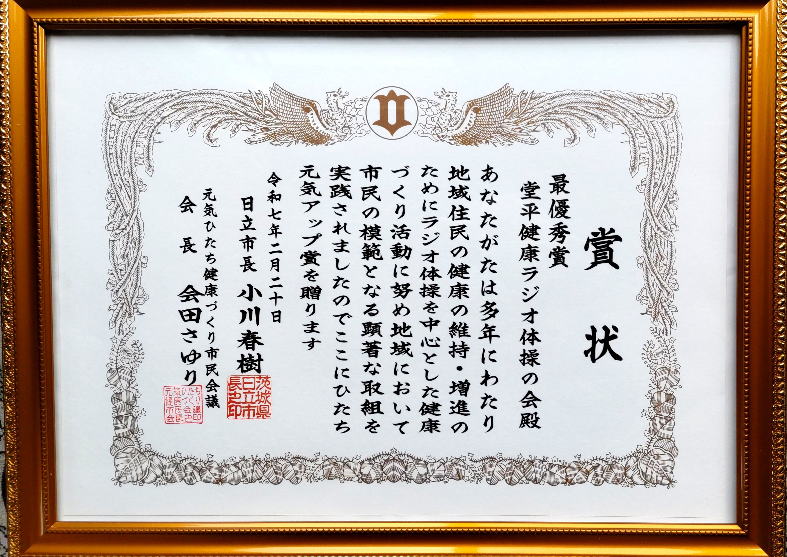 賞状
最優秀賞
堂平健康ラジオ体操の会殿
あなたがたは多年にわたり
地域住民の健康の維持・増進の
ためにラジオ体操を中心とした健康
づくり活動に努め地域において
市民の模範となる顕著な取組を
実践されましたのでここにひたち
元気アップ賞を贈ります
令和七年二月二十日
日立市長 小川春樹
茨城県
日立市
長之印
元気ひたち健康づくり市民会議
会長 会田さゆり